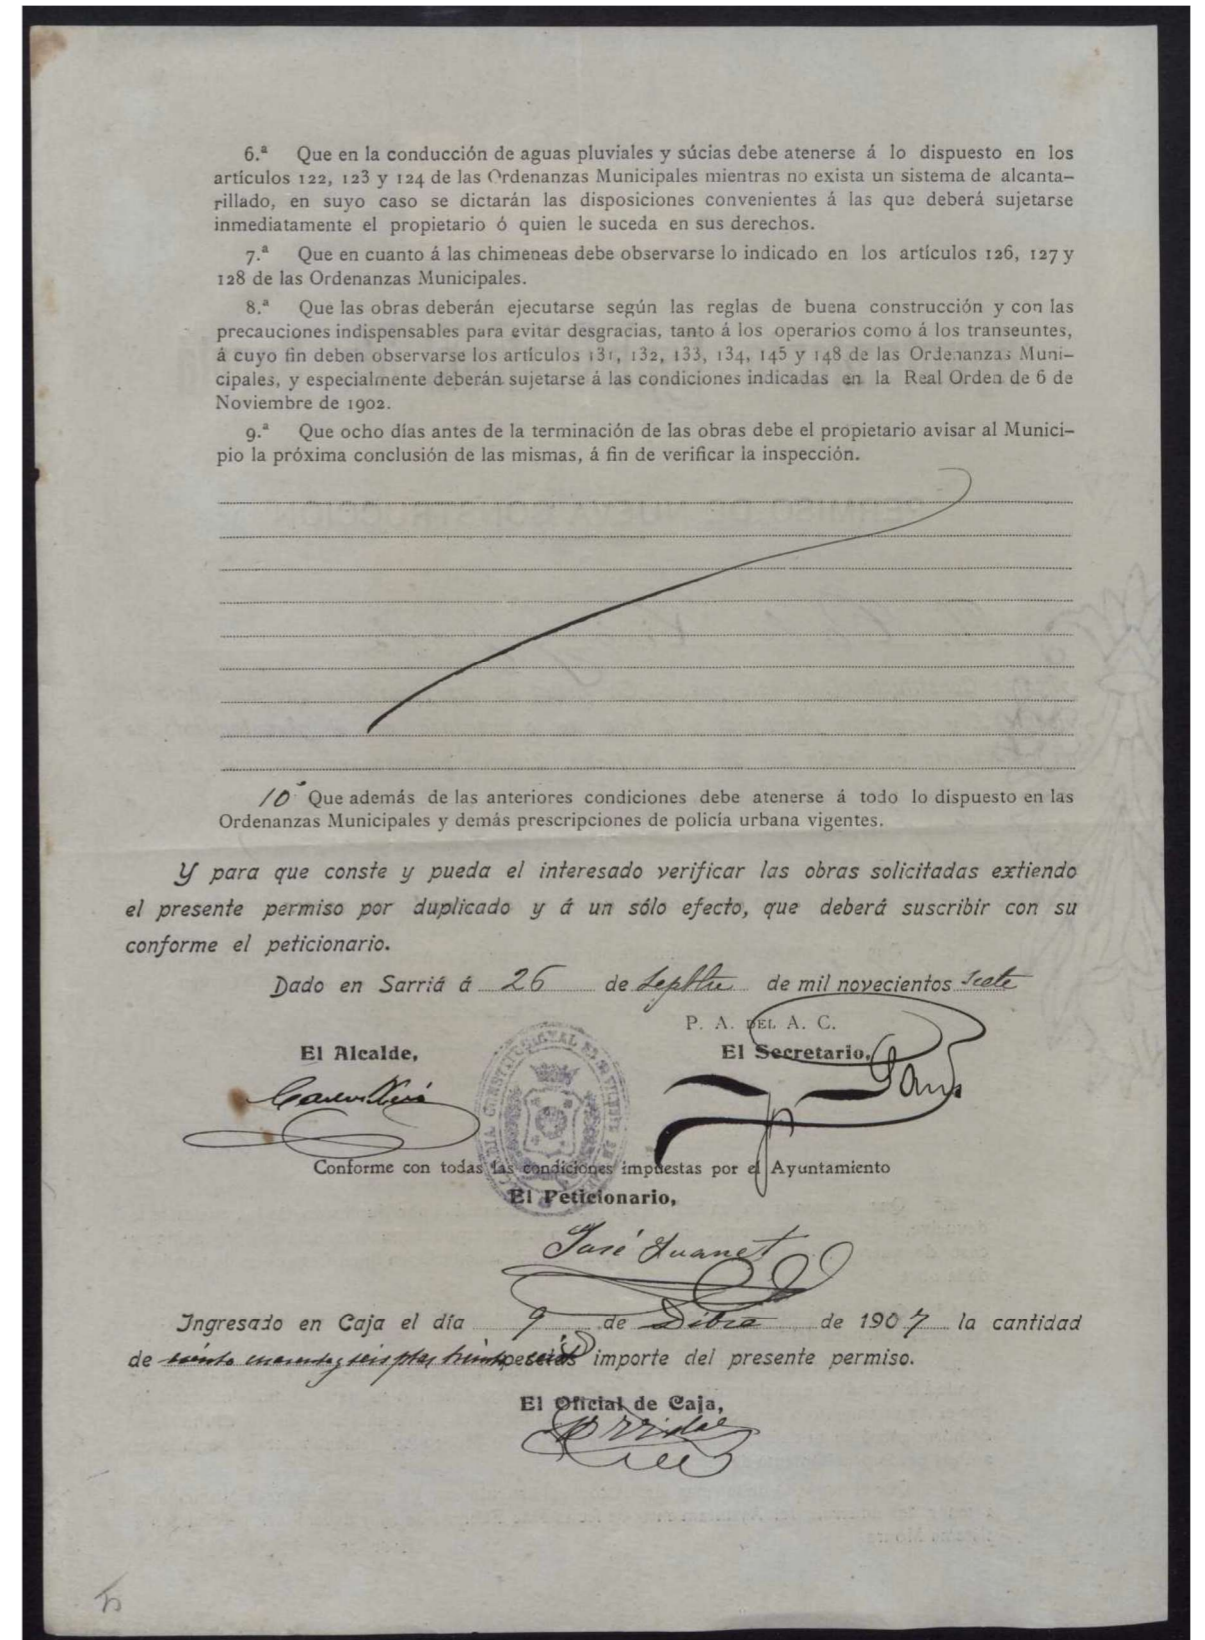 6.ª Que en la conducción de aguas pluviales y súcias debe atenerse á lo dispuesto en los
artículos 122, 123 y 124 de las Ordenanzas Municipales mientras no exista un sistema de alcanta-
rillado, en suyo caso se dictarán las disposiciones convenientes á las que deberá sujetarse
inmediatamente el propietario ó quien le suceda en sus derechos.
7.ª Que en cuanto á las chimeneas debe observarse lo indicado en los artículos 126, 127 y
128 de las Ordenanzas Municipales.
8.ª Que las obras deberán ejecutarse según las reglas de buena construcción y con las
precauciones indispensables para evitar desgracias, tanto á los operarios como á los transeuntes,
á cuyo fin deben observarse los artículos 131, 132, 133, 134, 145 y 148 de las Ordenanzas Muni-
cipales, y especialmente deberán sujetarse á las condiciones indicadas en la Real Orden de 6 de
Noviembre de 1902.
9.ª Que ocho días antes de la terminación de las obras debe el propietario avisar al Munici-
pio la próxima conclusión de las mismas, á fin de verificar la inspección.
10ª Que además de las anteriores condiciones debe atenerse á todo lo dispuesto en las
Ordenanzas Municipales y demás prescripciones de policía urbana vigentes.
Y para que conste y pueda el interesado verificar las obras solicitadas extiendo
el presente permiso por duplicado y á un sólo efecto, que deberá suscribir con su
conforme el peticionario.
Dado en Sarriá á 26 de Septbre de mil novecientos siete
P. A. DEL A. C.
El Alcalde,
El Secretario,
Conforme con todas las condiciones impuestas por el Ayuntamiento
El Peticionario,
José Juanet
Ingresado en Caja el día 9 de Dibre de 1907 la cantidad
de ciento cuarenta y seis ptas pesetas importe del presente permiso.
El Oficial de Caja,